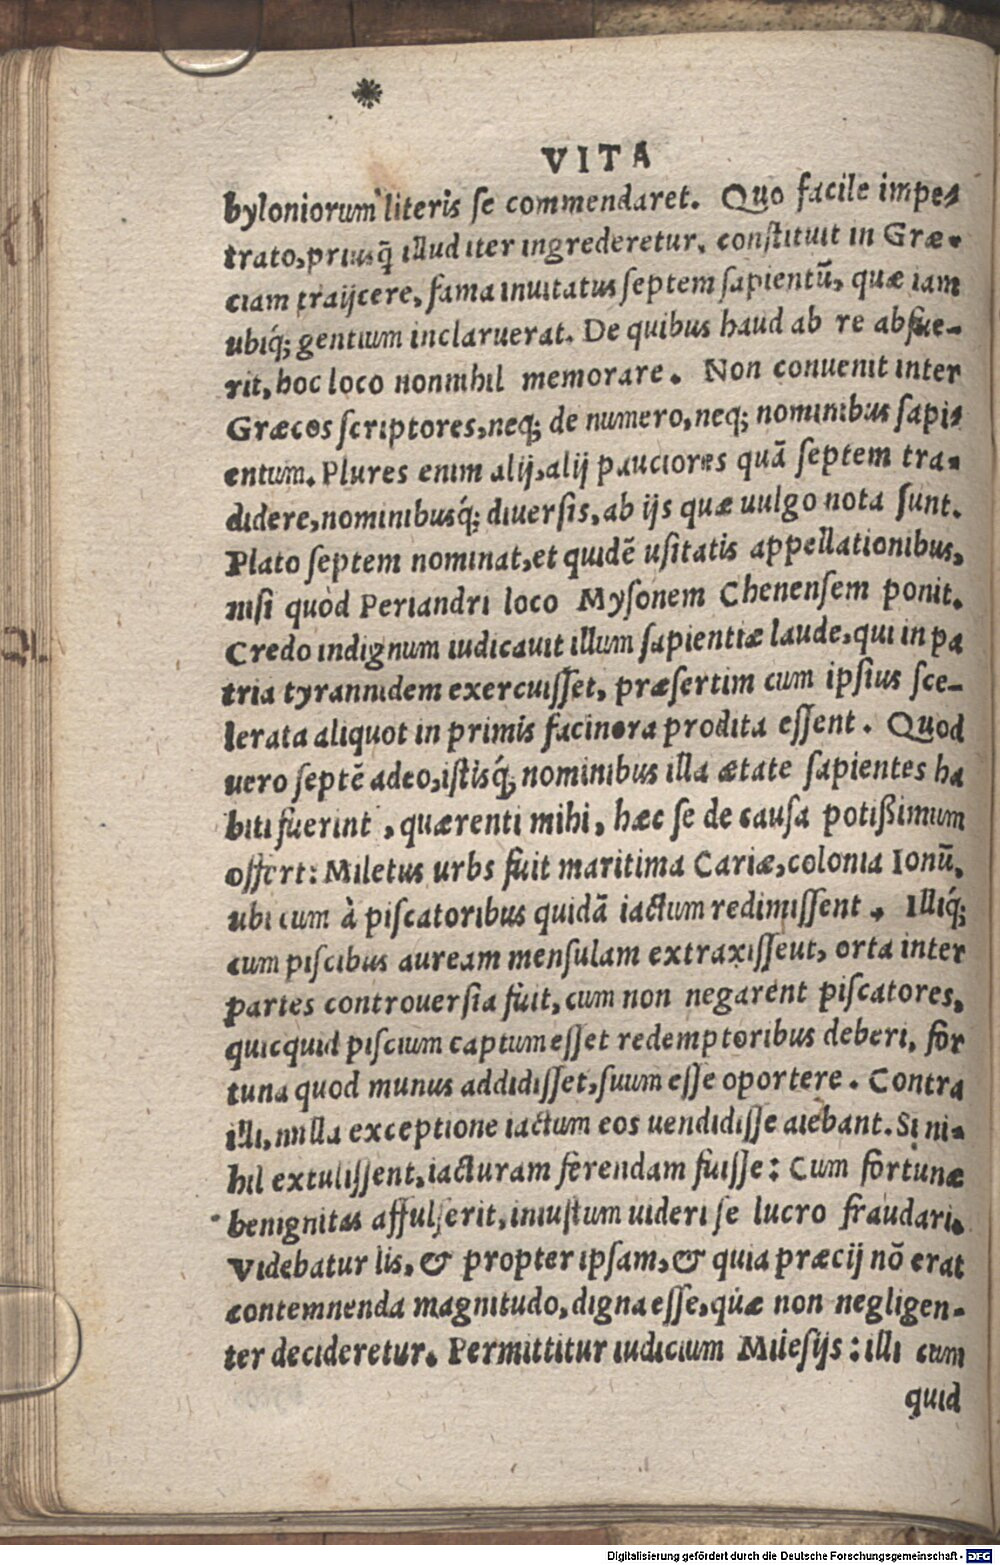 VITA
byloniorum literis se commendaret. Quo facile impe-
trato, priusq̃ illud iter ingrederetur, constituit in Græ-
ciam traijcere, fama inuitatus septem sapientũ, quæ iam
ubiq́; gentium inclaruerat. De quibus haud ab re absue-
rit, hoc loco nonnihil memorare. Non conuenit inter
Græcos scriptores, neq; de numero, neq; nominibus sapi-
entum. Plures enim alij, alij pauciores quã septem tra-
didere, nominibusq́; diuersis, ab ijs quæ uulgo nota sunt.
Plato septem nominat, et quidẽ usitatis appellationibus,
nisi quòd Periandri loco Mysonem Chenensem ponit.
Credo indignum iudicauit illum sapientiæ laude, qui in pa
tria tyrannidem exercuisset, præsertim cum ipsius sce-
lerata aliquot in primis facinora prodita essent. Quod
uero septẽ adeo, istisq́; nominibus illa ætate sapientes ha
biti fuerint, quærenti mihi, hæc se de causa potißimum
offert: Miletus urbs fuit maritima Cariæ, colonia Ionũ,
ubi cum à piscatoribus quidã iactum redimissent. Illiq́;
cum piscibus auream mensulam extraxisseut, orta inter
partes controuersia fuit, cum non negarent piscatores,
quicquid piscium captum esset redemptoribus deberi, for
tuna quod munus addidisset, suum esse oportere. Contra
illi, nulla exceptione iactum eos uendidisse aiebant. Si ni-
hil extulissent, iacturam ferendam fuisse: Cum fortunæ
benignitas affulserit, iniustum uideri se lucro fraudari.
Videbatur lis, & propter ipsam, & quia præcij nõ erat
contemnenda magnitudo, digna esse, quæ non negligen-
ter decideretur. Permittitur iudicium Milesijs: illi cum
quid
Digitalisierung gefördert durch die Deutsche Forschungsgemeinschaft - DFG